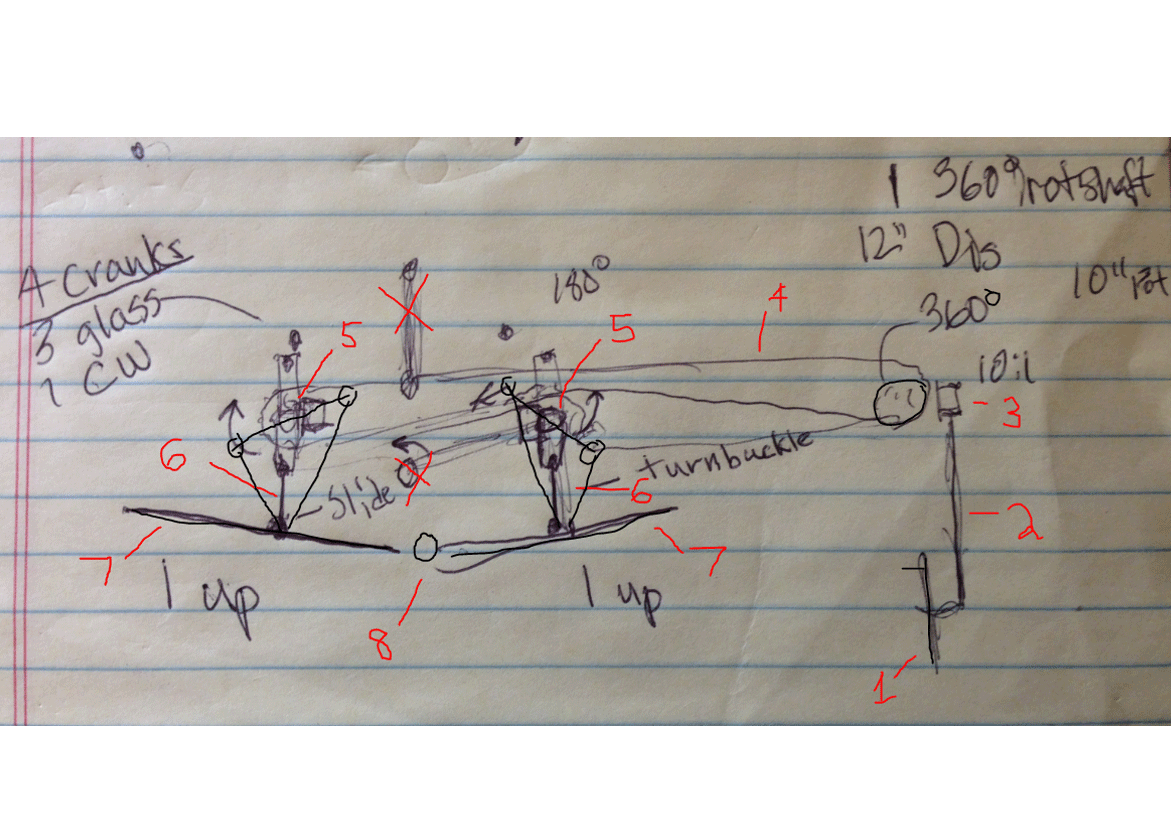 1 360° rotshaft
12" Dis
10"
360°
10:1
4 Cranks
3 glass
1 CW
180°
4
5
5
3
6
6
slide
turnbuckle
2
7
7
1 up
1 up
8
1